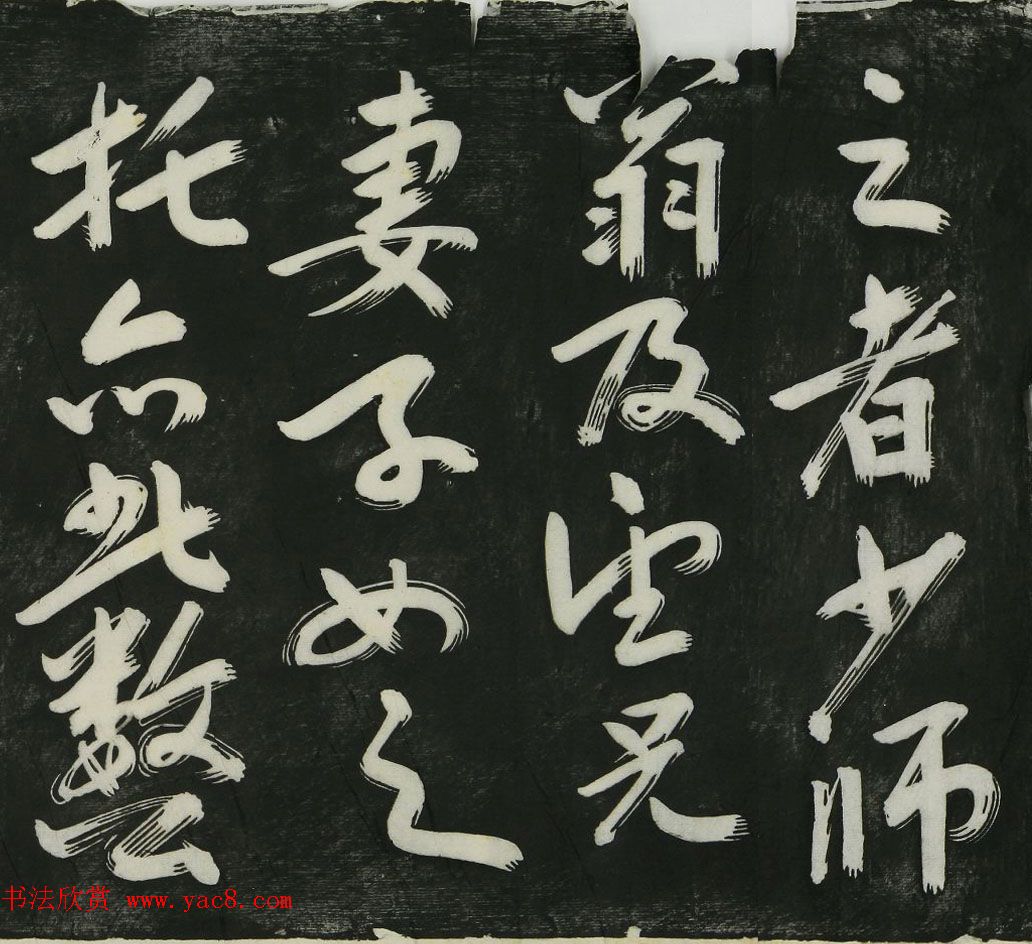 之者少師
翁及兄
妻子女之
托亦此數公
书法欣赏 www.yac8.com